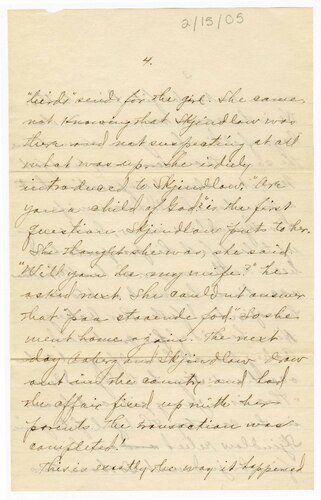 2/15/05
4.
"birds" send for the girl. She came
not knowing that Skjindlow was
there and not suspecting at all
what was up. She is duly
introduced to Skjindlow. "Are
you a child of God" is the first
question Skjindlow put to her.
She thought she was, she said.
"Will you be my wife?" he
asked next. She couldn't answer
that "paa staaende fod." So she
went home again. The next
day and Skjindlow drove
out in the country and had
the affair fixed up with her
parents. The transaction was
completed!
This is exactly the way it happened